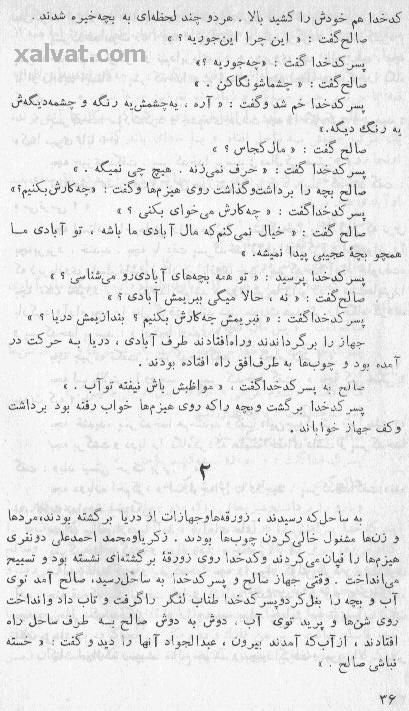 کدخدا هم خودش را کشید بالا . هر دو چند لحظه‌ای به بچه خیره شدند .
xalvat.com
صالح گفت : « این چرا این‌جوریه ؟ »
پسر کدخدا گفت : « چه‌جوریه ؟»
صالح گفت : « چشماشو نگاکن . »
پسر کدخدا خم شد و گفت : « آره ، یه‌چشمش‌یه رنگه و چشمه‌دیگه‌ش
یه رنگ دیگه.»
صالح گفت : « مال کجاس ؟ »
پسر کدخدا گفت : « حرف نمی‌زنه . هیچ چی نمیگه . »
صالح بچه را برداشت‌وگذاشت روی هیزم‌ها وگفت : «چه‌کارش‌بکنیم؟»
پسر کدخداگفت : « چه‌کارش می‌خوای بکنی ؟ »
صالح گفت : « خیال نمی‌کنم‌که مال آبادی ما باشه ، تو آبادی مـا
همچو بچهٔ عجیبی پیدا نمیشه. »
پسر کدخدا پرسید : « تو همه بچه‌های آبادی‌رو می‌شناسی ؟ »
صالح‌گفت : « نه ، حالا میگی ببریمش آبادی ؟ »
پسر کدخداگفت : « نبریمش چه‌کارش بکنیم ؟ بندازیمش دریا ؟ »
جهاز را برگرداندند وراه‌افتادند طرف آبادی ، دریا بـه حرکت در
آمده بود و چوب‌ها به طرف‌افق راه افتاده بودند .
صالح به پسرکدخداگفت ، « مواظبش باش نیفته توآب . »
پسر کدخدا برگشت وبچه راکه روی هیزم‌ها خواب رفته بود برداشت
وکف جهاز خواباند .
۲
به ساحل‌که رسیدند ، زورقه‌هاوجهازات از دریا برگشته بودند،مردها
و زن‌ها مشغول خالی‌کردن چوب‌ها بودند. زکریاومحمد احمدعلی دونفری
هیزم‌ها را قپان می‌کردند وکدخدا روی زورقهٔ برگشته‌ای نشسته بود و تسبیح
می‌انداخت . وقتی جهاز صالح و پسر کدخدا به ساحل‌رسید، صالح آمد توی
آب و بچه را بغل‌کردوپسرکدخدا طناب لنگر راگرفت و تاب داد وانداخت
روی شن‌ها و پرید توی آب . دوش به دوش صالح بـه طرف ساحل راه
افتادند ، ازآب‌که آمدند بیرون ، عبدالجواد آنها را دید و گفت : « خسته
نباشی صالح . »
۳۶